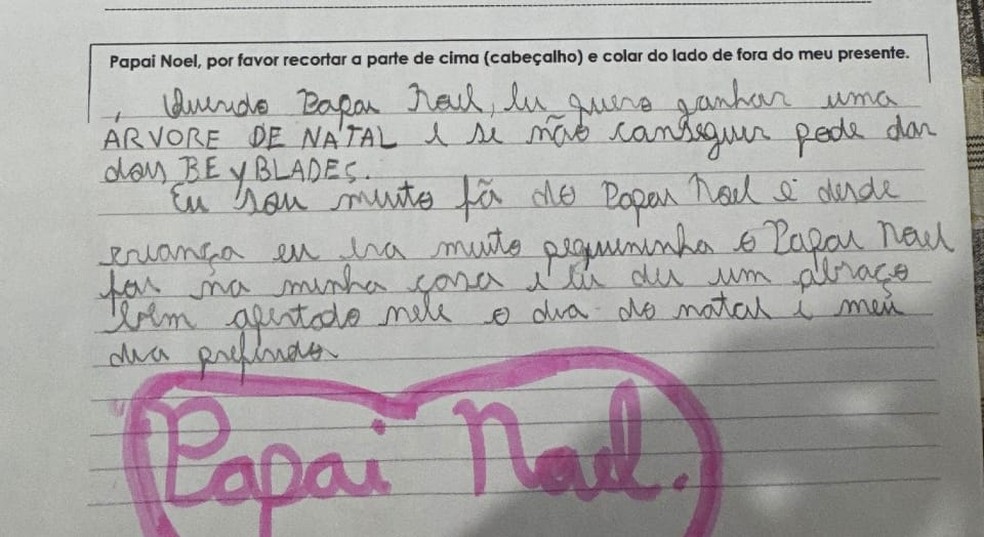 Papai Noel, por favor recortar a parte de cima (cabeçalho) e colar do lado de fora do meu presente.
, Querido Papai Noel, Eu quero ganhar uma
ARVORE DE NATAL e se não conseguir pode dar
dois BEYBLADES.
Eu sou muito fã do Papai Noel e desde
criança eu era muito pequeninha o Papai Noel
foi na minha casa e eu dei um abraço
bem apertado nele o dia do natal é meu
dia preferido
Papai Noel.